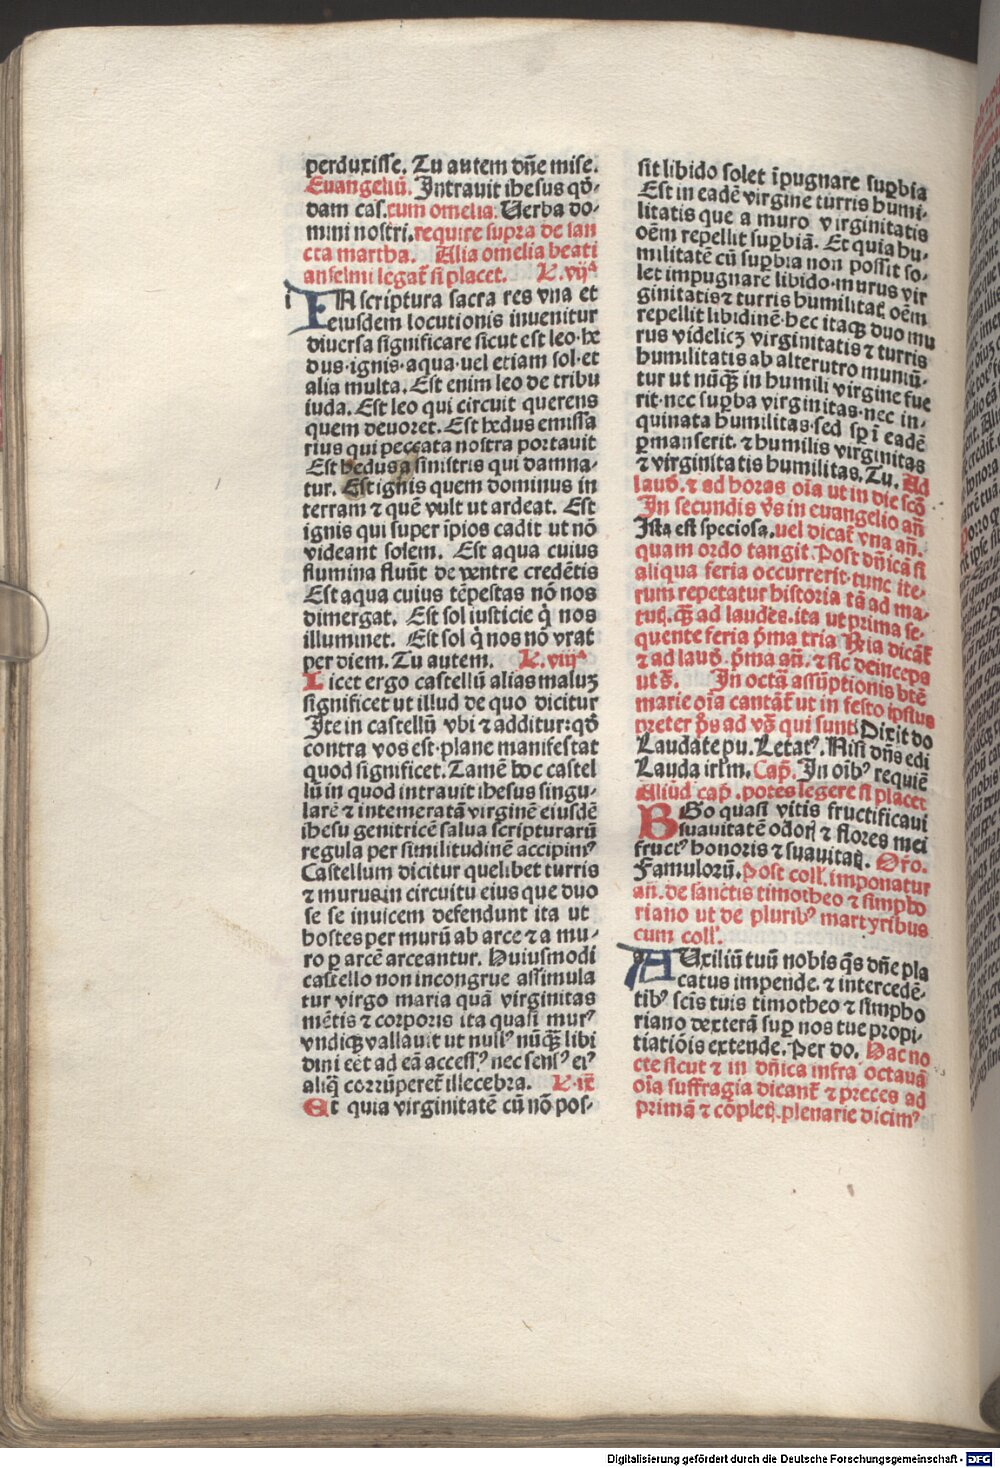 perduxisse. Tu autem dñe mise.
Euangeliũ. Intrauit ihesus qdõ-
dam cas. cum omelia. Uerba do-
mini nostri. require supra de san
cta martha. Alia omelia beati
anselmi legat̃ si placet. L. vijª
i
IN scriptura sacra res vna et
eiusdem locutionis inuenitur
diuersa significare sicut est leo·he
dus·ignis·aqua·uel etiam sol·et
alia multa. Est enim leo de tribu
iuda. Est leo qui circuit querens
quem deuoret. Est hedus emissa
rius qui peccata nostra portauit
Est hedus a sinistris qui damna-
tur. Est ignis quem dominus in
terram ⁊ quẽ vult ut ardeat. Est
ignis qui super ĩpios cadit ut nõ
videant solem. Est aqua cuius
flumina fluũt de ventre credẽtis
Est aqua cuius tẽpestas nõ nos
dimergat. Est sol iusticie q̇ nos
illuminet. Est sol q̇ nos nõ vrat
per diem. Tu autem. L. viijª
Licet ergo castellũ alias maluꝫ
significet ut illud de quo dicitur
Ite in castellũ vbi ⁊ additur: qđ
contra vos est·plane manifestat
quod significet. Tamẽ hoc castel
lũ in quod intrauit ihesus singu-
larẽ ⁊ intemeratã virginẽ eiusdẽ
ihesu genitricẽ salua scripturarũ
regula per similitudinẽ accipimꝰ
Castellum dicitur quelibet turris
⁊ murus in circuitu eius que duo
se se inuicem defendunt ita ut
hostes per murũ ab arce ⁊ a mu-
ro ꝑ arcẽ arceantur. Huiusmodi
castello non incongrue assimula
tur virgo maria quã virginitas
mẽtis ⁊ corporis ita quasi murꝰ
vndiqꝫ vallauit ut nullꝰ nũqꝫ libi
dini eẽt ad eã accessꝰ nec sensꝰ eiꝰ
aliq̃ corrũperet̃ illecebra. L. ix
Et quia virginitatẽ cũ nõ pos-
sit libido solet ĩpugnare suꝑbia
Est in eadẽ virgine turris humi-
litatis que a muro virginitatis
oẽm repellit suꝑbiã. Et quia hu-
militatẽ cũ suꝑbia non possit so-
let impugnare libido·murus vir
ginitatis ⁊ turris humilitat̃ oẽm
repellit libidinẽ·hec itaqꝫ duo mu
rus videlicꝫ virginitatis ⁊ turris
humilitatis ab alterutro muniũ-
tur ut nũqꝫ in humili virgine fue
rit·nec suꝑba virginitas·nec in-
quinata humilitas·sed sꝑ ĩ eadẽ
ꝑmanserit. ⁊ humilis virginitas
⁊ virginitatis humilitas. Tu. Ad
laud̃. ⁊ ad horas oĩa ut in die scõ
In secundis v̾s in euangelio añ
Ista est speciosa. uel dicat̃ vna añ.
quam ordo tangit. Post dñica si
aliqua feria occurrerit·tunc ite-
rum repetatur historia tã ad ma-
tuť. qꝫ ad laudes. ita ut prima se-
quente feria pͥma tria R̾ia dicãt̃
⁊ ad laud̃. pͥma añ. ⁊ sic deinceps
ut s̾. In octã assũptionis btẽ
marie oĩa cantãt̃ ut in festo ipsius
preter p̃s ad vs̃ qui sunt Dixit do
Laudate pu. Letatꝰ. Nisi dñs edi
Lauda irlm. Cap̃. In oĩbꝰ requiẽ
Aliũd cap̃. potes legere si placet
EGo quasi vitis fructificaui
suauitatẽ odor̃ ⁊ flores mei
fructꝰ honoris ⁊ suauitat̃. Or̃o.
Famulorũ. post coll. imponatur
añ. de sanctis timotheo ⁊ simpho
riano ut de pluribꝰ martyribus
cum coll.
AUxiliũ tuũ nobis q̃s dñe pla
catus impende. ⁊ intercedẽ-
tibꝰ scĩs tuis timotheo ⁊ simpho
riano dexterã suꝑ nos tue propi-
tiatiõis extende. Per do. Hac no
cte sicut ⁊ in dñica infra octauã
oĩa suffragia dicant̃ ⁊ preces ad
primã ⁊ cõplet̃. plenarie dicimꝰ
Digitalisierung gefördert durch die Deutsche Forschungsgemeinschaft - DFG